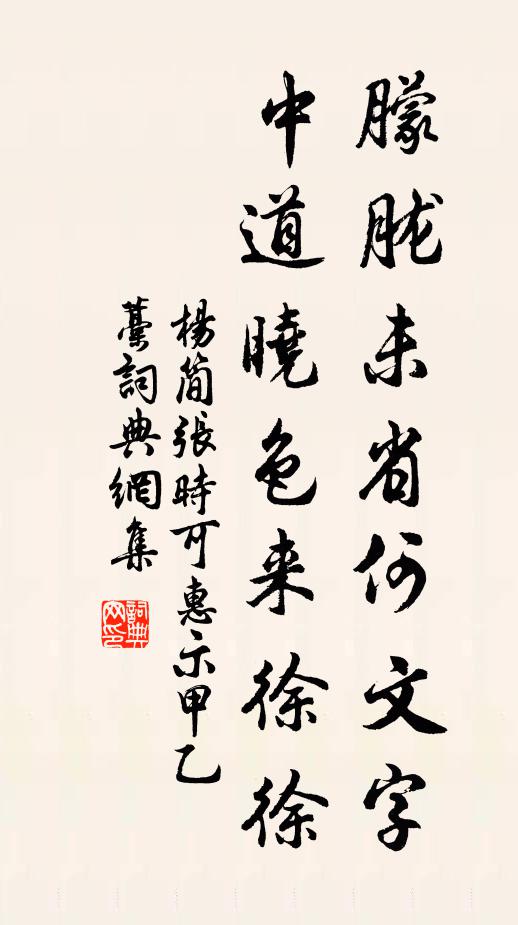 朦朧未省何文字
中道曉色来徐徐
楊簡張時可惠示甲乙
藁詞典網集
詞典网印